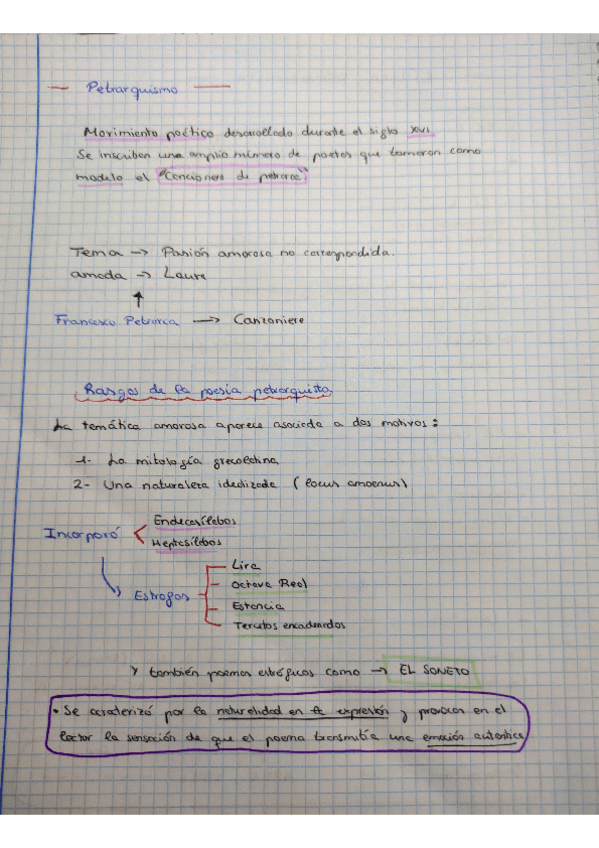 Petrarquismo
Movimiento poético desarrollado durante el siglo XVI.
Se inscriben una amplio número de poetas que tomaron como
modelo el "Cancionero de petrarca".
Tema → Pasión amorosa no correspondida.
amada → Laura
↑
Francesco Petrarca → Canzoniere
Rasgos de la poesía petrarquista
La temática amorosa aparece asociada a dos motivos:
1- La mitología grecolatina
2- Una naturaleza idealizada (locus amoenus)
Incorporó
Endecasílabos
Heptasílabos
Estrofas
Lira
Octava Real
Estancia
Tercetos encadenados
Y también poemas estróficos como → EL SONETO
• Se caraterizó por la naturalidad en la expresión y provocar en el
lector la sensación de que el poema transmitía una emoción autentica